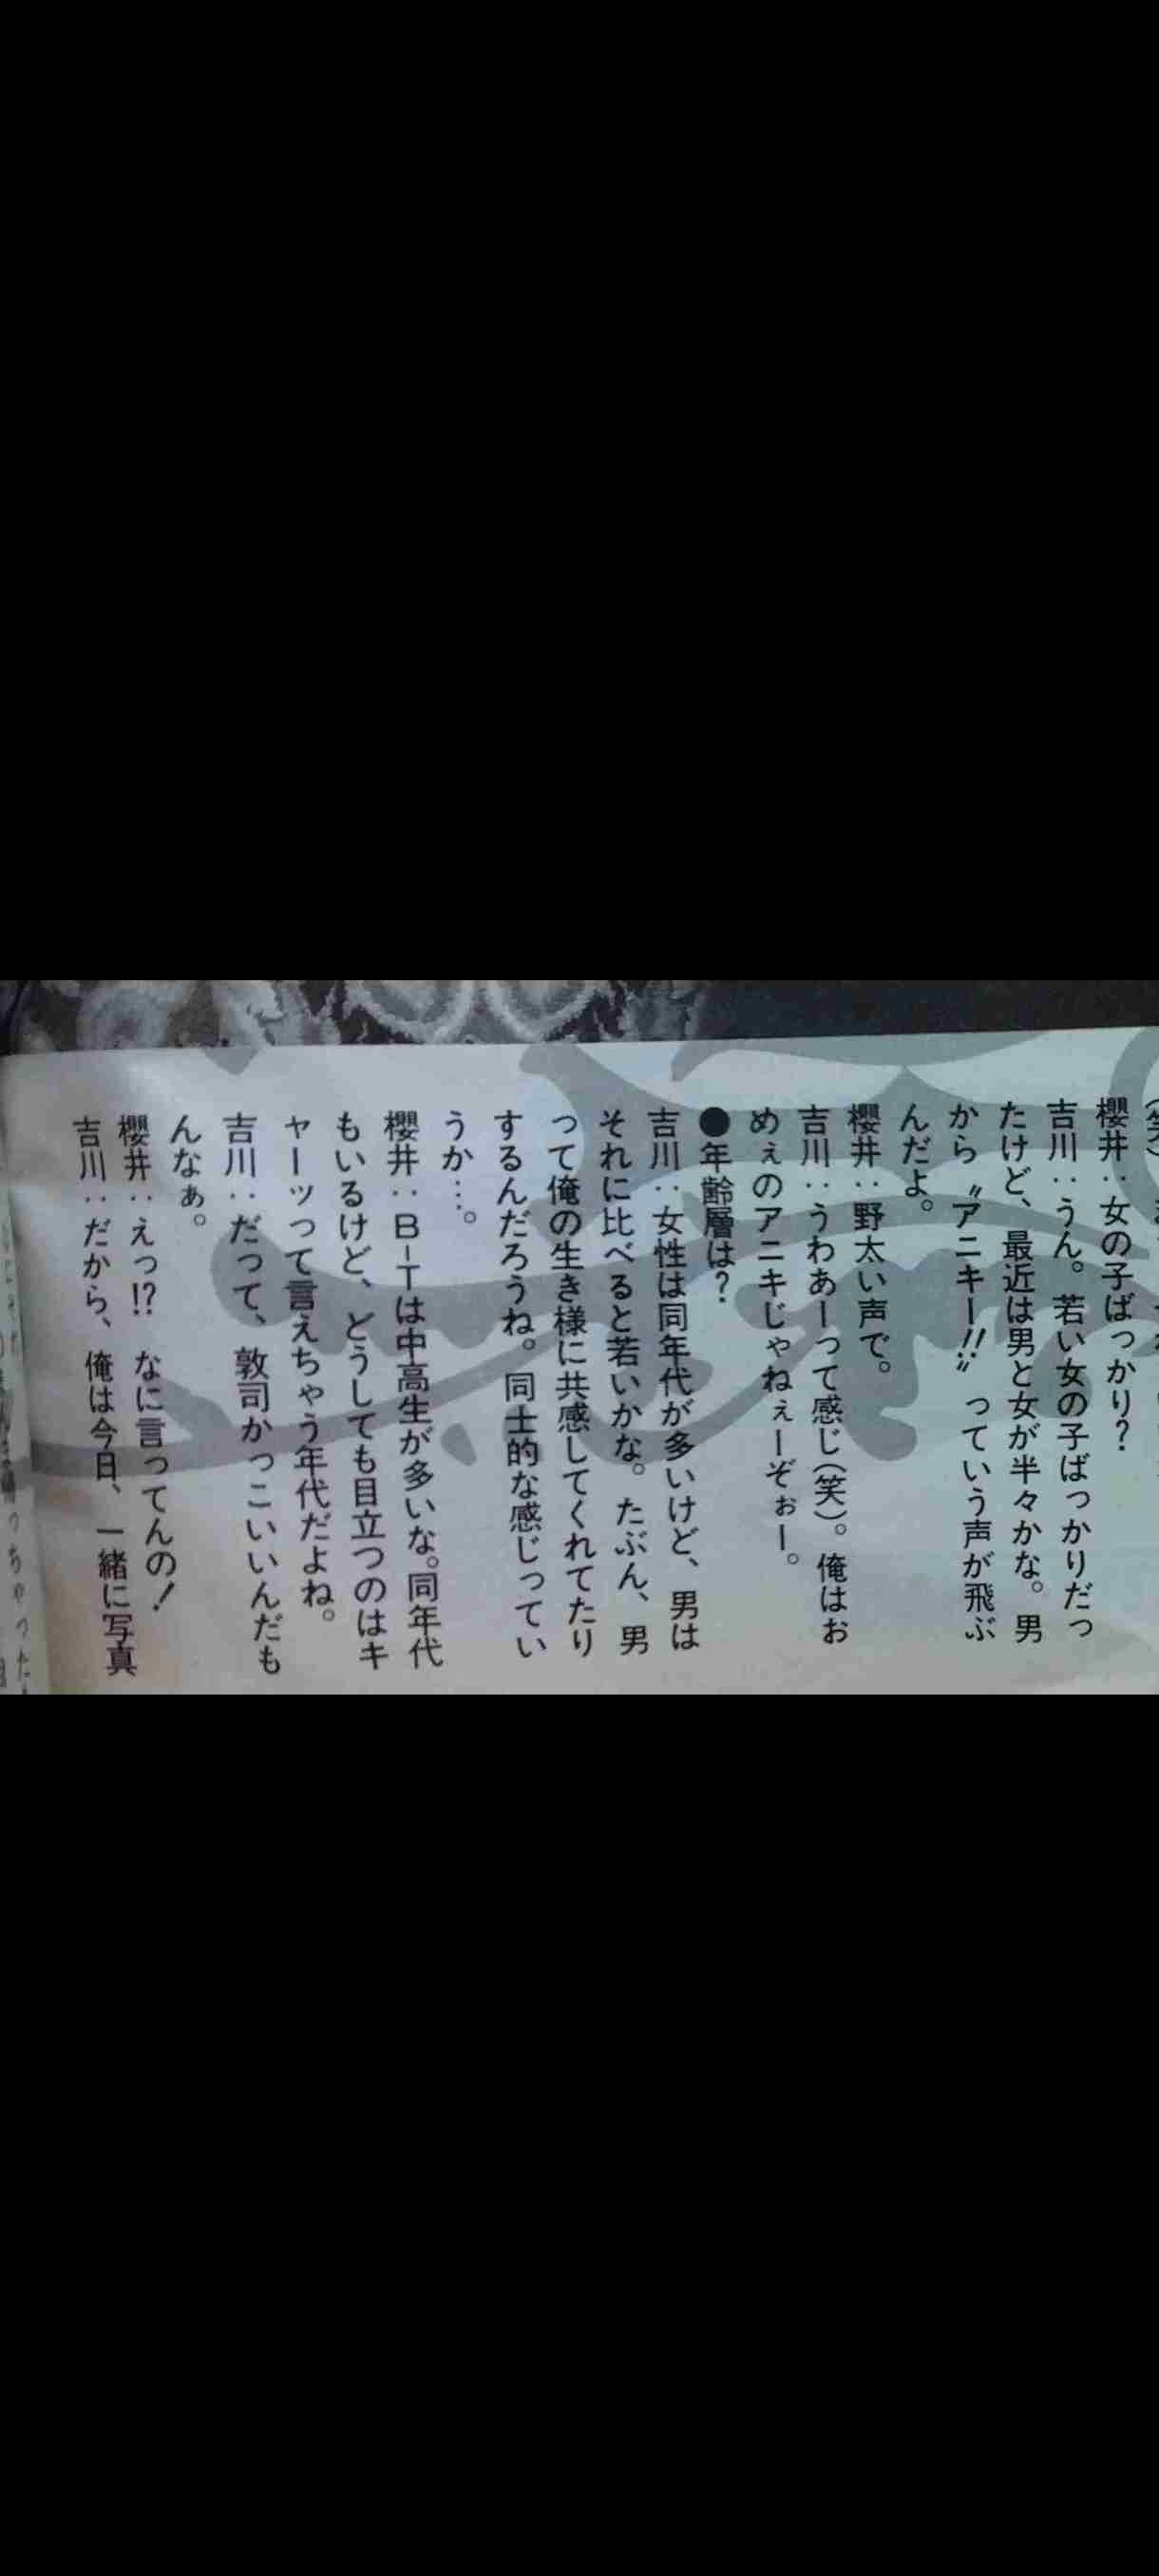 (笑)
櫻井：女の子ばっかり？
吉川：うん。若い女の子ばっかりだっ
たけど、最近は男と女が半々かな。男
から〝アニキー!!〟っていう声が飛ぶ
んだよ。
櫻井：野太い声で。
吉川：うわあーって感じ(笑)。俺はお
めぇのアニキじゃねぇーぞぉー。
●年齢層は？
吉川：女性は同年代が多いけど、男は
それに比べると若いかな。たぶん、男
って俺の生き様に共感してくれてたり
するんだろうね。同士的な感じってい
うか…。
櫻井：B-Tは中高生が多いな。同年代
もいるけど、どうしても目立つのはキ
ャーッって言えちゃう年代だよね。
吉川：だって、敦司かっこいいんだも
んなぁ。
櫻井：えっ!? なに言ってんの！
吉川：だから、俺は今日、一緒に写真